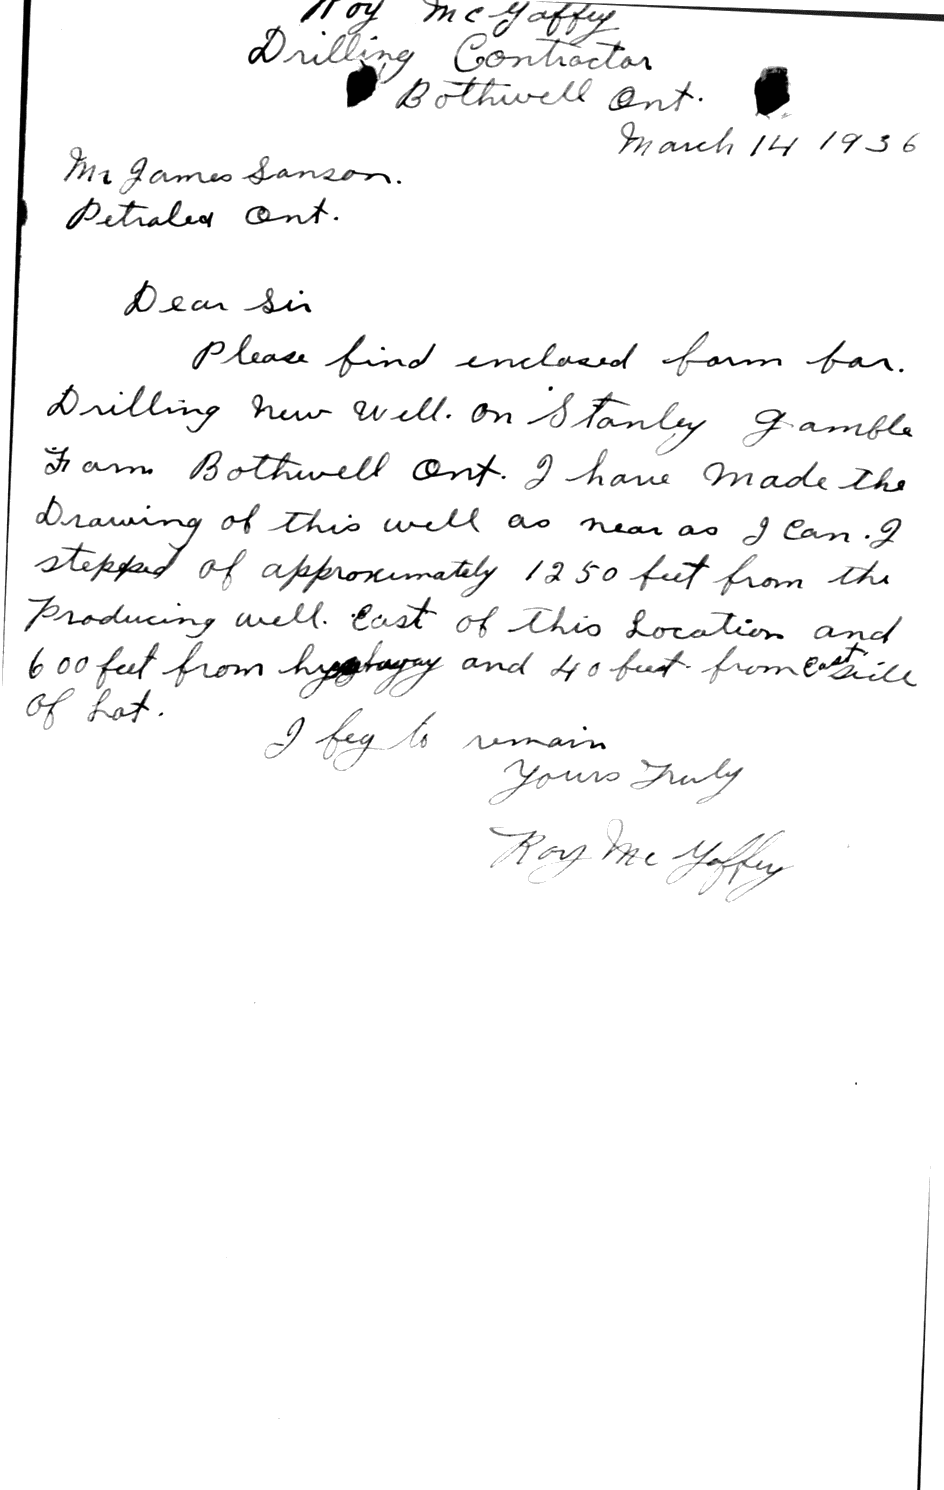 Roy McGaffey
Drilling Contractor
Bothwell Ont.
March 14 1936
Mr James Sanson.
Petrolea Ont.
Dear Sir
Please find enclosed form for.
Drilling New Well. on Stanley Gamble
Farm Bothwell Ont. I have Made the
Drawing of this well as near as I Can. I
stepped of approximately 1250 feet from the
Producing well. East of this Location and
600 feet from and 40 feet from East side
of Lot.
I beg to remain
Yours Truly
Roy McGaffey